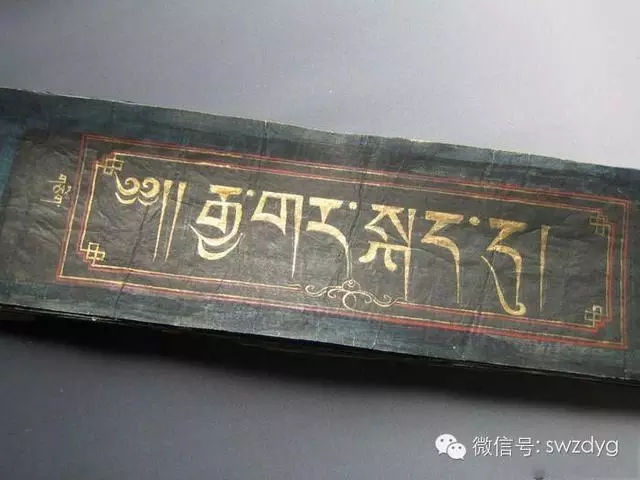 གཅིག
༄༅། །རྒྱ་གར་སྐད་དུ།
微信号: swzdyg